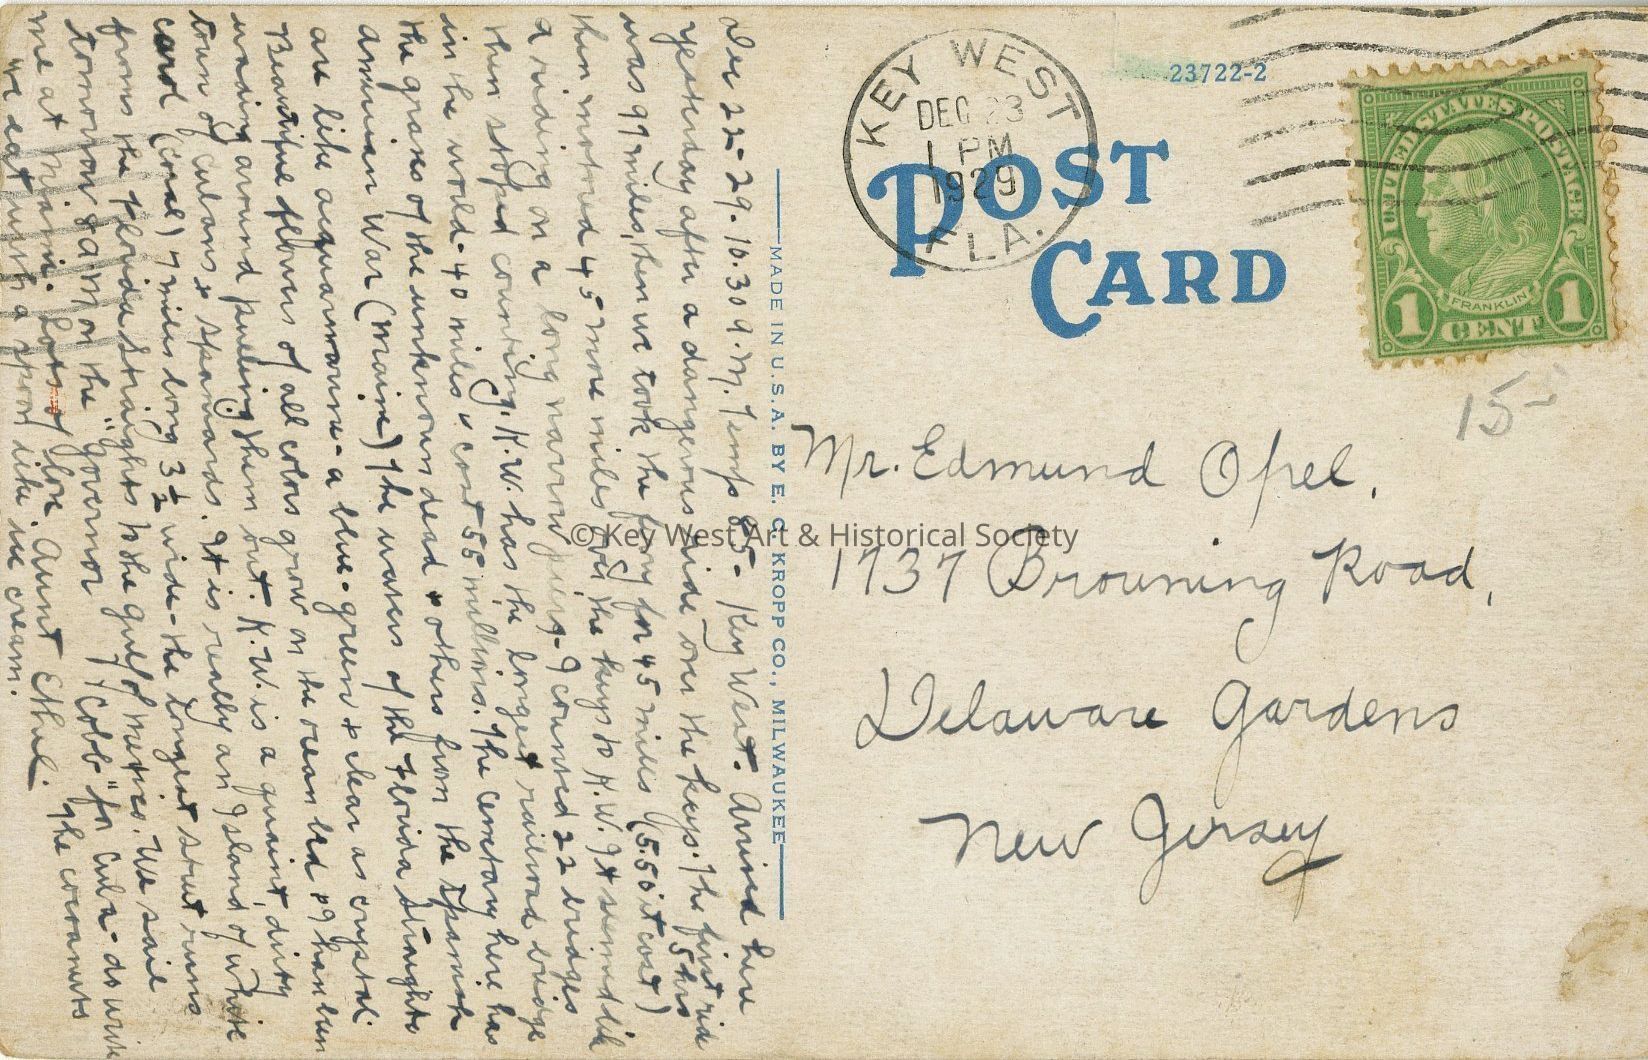 Dec 22-29. 10.30 a.m. Temp 85- Key West. Arrived here
yesterday after a dangerous ride over the keys. The first ride
was 99 miles, then we took the ferry for 45 miles (5.50 it cost) 5 hrs
then motored 45 more miles over the keys to K.W. It seemed like
a riding on a long narrow piers- I counted 22 bridges
then stoped counting. K.W. has the longest railroad bridge
in the world- 40 miles " cost 55 millions. The cemetary here has
the graves of the unknown dead & others from the Spanish
American War (Maine) The waters of the Florida Straights
are like acquarmarine- a blue-green & clear as crystal.
Beautiful flowers of all colors grow on the ocean bed & I have been
wading around pulling them out. K.W. is a quaint, dirty
town of Cubans & Spaniards. It is really an Island of white
coral (coral) 7 miles long 3 1/2 wide- the longest street runs
from the Florida Straights to the gulf of Mexico. We sail
tomorrow 8 a.m on the "Governor Cobb" for Cuba- do write
me at Miami. Lots of love. Aunt Ethel. The cocoanuts
we eat with a spoon like ice cream.
MADE IN U.S.A. BY E. C. KROPP CO., MILWAUKEE
KEY WEST
DEC 23
1 PM
1929
FLA.
23722-2
POST
CARD
UNITED STATES POSTAGE
FRANKLIN
1 CENT 1
15-
Mr. Edmund Opel,
1737 Browning Road,
Delaware Gardens
New Jersey
© Key West Art & Historical Society